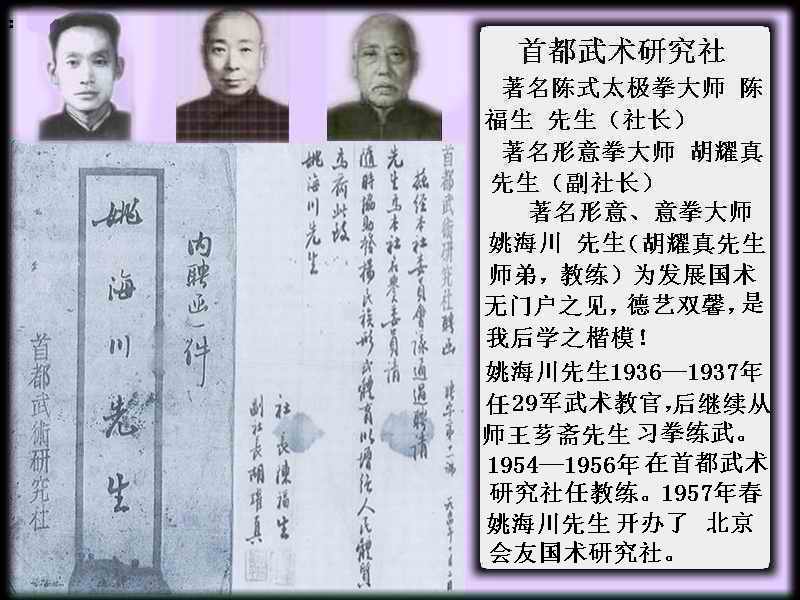 首都武术研究社
著名陈式太极拳大师 陈
福生 先生（社长）
著名形意拳大师 胡耀真
先生（副社长）
著名形意、意拳大师
姚海川 先生（胡耀真先生
师弟，教练）为发展国术
无门户之见，德艺双馨，是
我后学之楷模！
姚海川先生1936—1937年
任29军武术教官，后继续从
师王芗斋先生 习拳练武。
1954—1956年 在首都武术
研究社任教练。1957年春
姚海川先生 开办了 北京
会友国术研究社。
内聘函一件
姚海川先生
首都武術研究社
首都武術研究社聘函
茲經本社委員會議通過聘請
先生為本社名譽委員請
隨時協助發揚民族形式體育以增強人民體質
為荷此致
姚海川先生
社長陳福生
副社長胡耀真